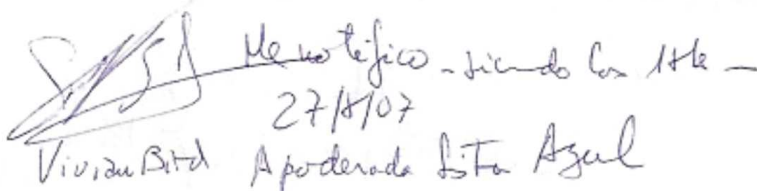 Me notifico - siendo las 14h -
27/8/07
Vivian Bird Apoderada Lista Azul